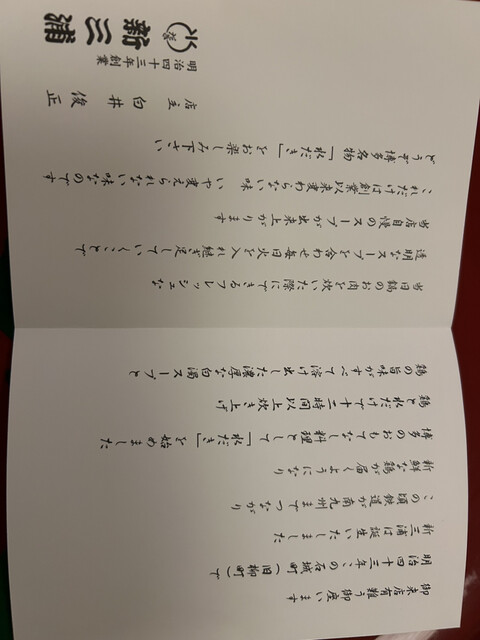 御来店有難う御座います
明治四十三年、この石城町(旧柳町)で
新三浦は誕生いたしました
この頃鉄道が南九州までつながり
新鮮な鶏が届くようになり
博多のおもてなし料理として「水だき」を始めました
鶏と水だけで十二時間以上炊き上げ
鶏の旨味がすべて溶け出した濃厚な白濁スープと
当日鍋のお肉を炊いた際にできるフレッシュな
透明なスープを合わせ毎日火を入れ継ぎ足していくことで
当店自慢のスープが出来上がります
これだけは創業以来変わらない味 いや変えられない味なのです
どうぞ博多名物「水だき」をお楽しみ下さい
店主 白井 俊正
明治四十三年創業
新三浦